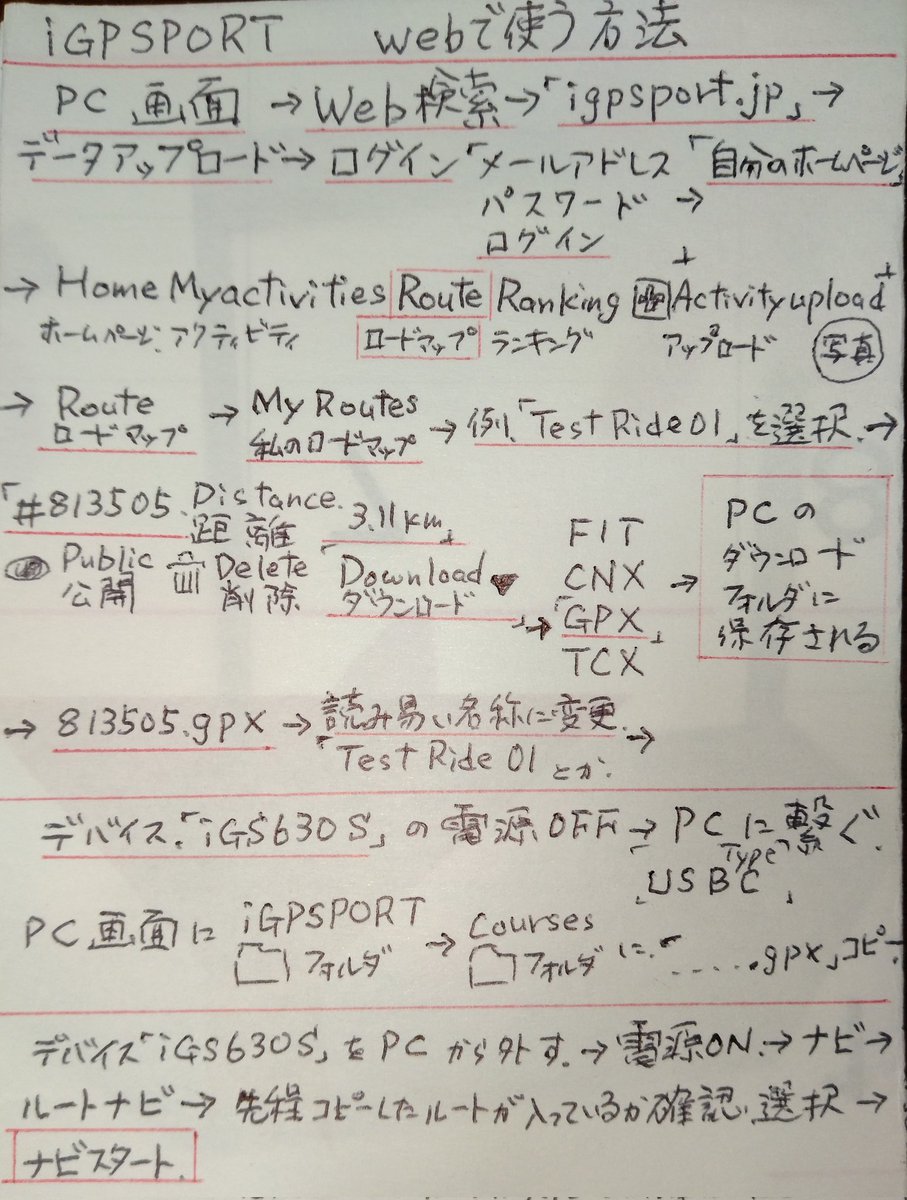 iGPSPORT webで使う方法
PC画面→Web検索→「igpsport.jp」→
データアップロード→ログイン「メールアドレス「自分のホームページ」
パスワード→
ログイン
→Home Myactivities Route Ranking Activity upload +
ホームページ アクティビティ ロードマップ ランキング アップロード 写真
→Route→My Routes→例「Test Ride 01」を選択→
ロードマップ 私のロードマップ
「#813505 Distance 3.11km」
距離
Public Delete 「Download
公開 削除 ダウンロード」→
FIT
CNX
「GPX」
TCX
→PCの
ダウンロード
フォルダに
保存される
→813505.gpx→読み易い名称に変更→
「Test Ride 01とか
デバイス「iGS630S」の電源OFF→PCに繋ぐ
「USB TypeC」
PC画面にiGPSPORT→Courses
フォルダ フォルダに「.....gpx」コピー
デバイス「iGS630S」をPCから外す→電源ON→ナビ→
ルートナビ→先程コピーしたルートが入っているか確認、選択→
ナビスタート